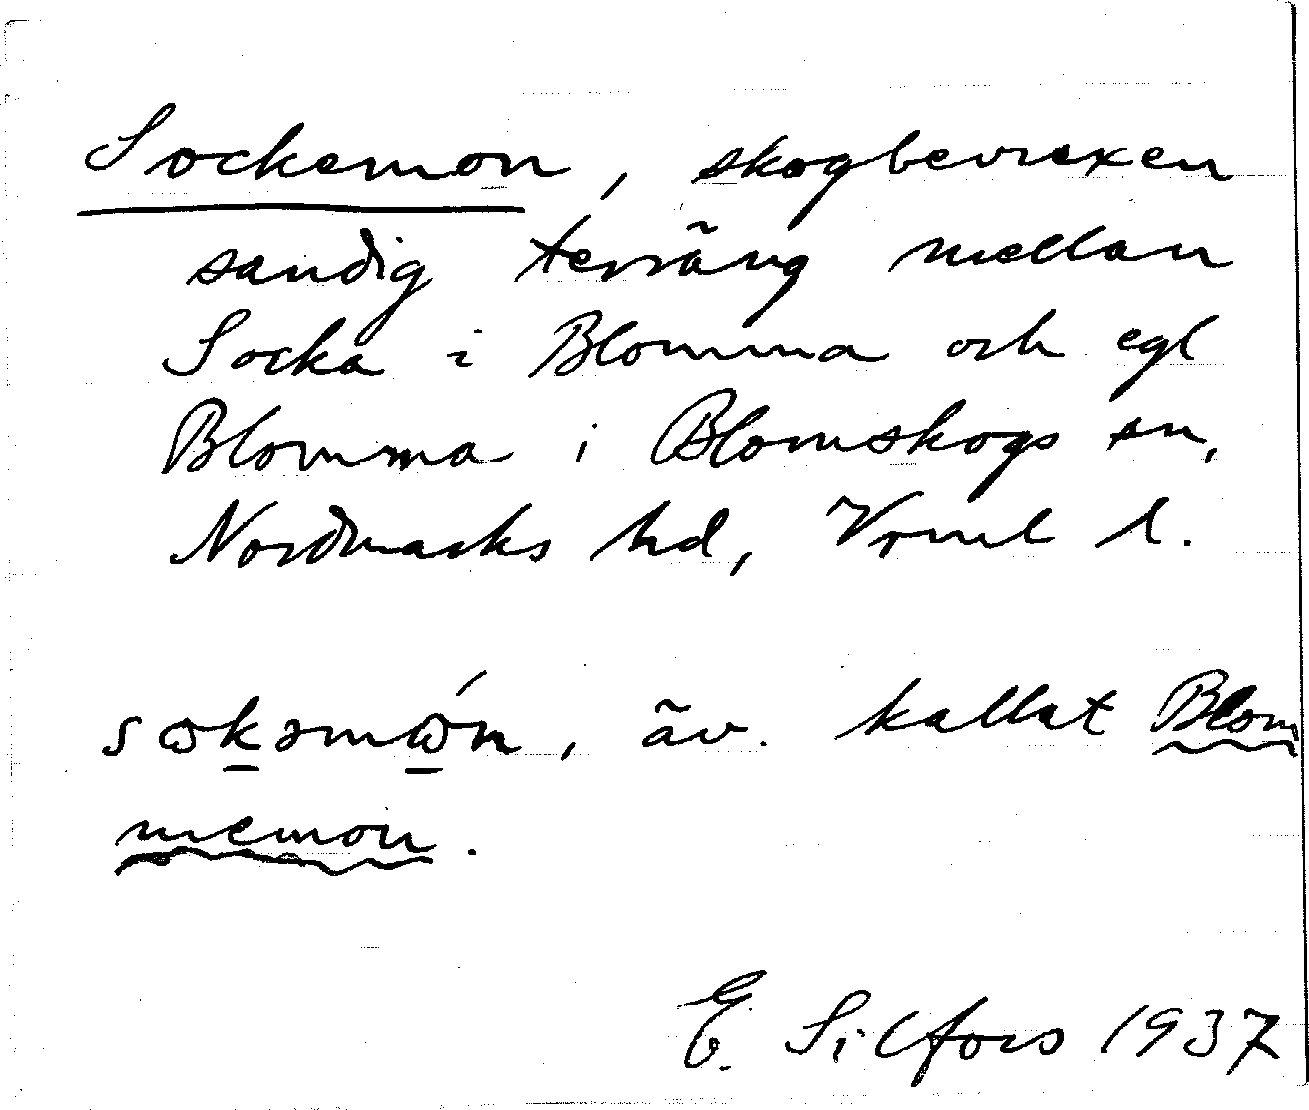 Sockemon, skogbevuxen
sandig terräng mellan
Socka i Blomma och egl
Blomma i Blomskogs sn,
Nordmarks hd, Vrml l.
sωkəmώn, äv. kallat Blom
memon.
E. Silfors 1937